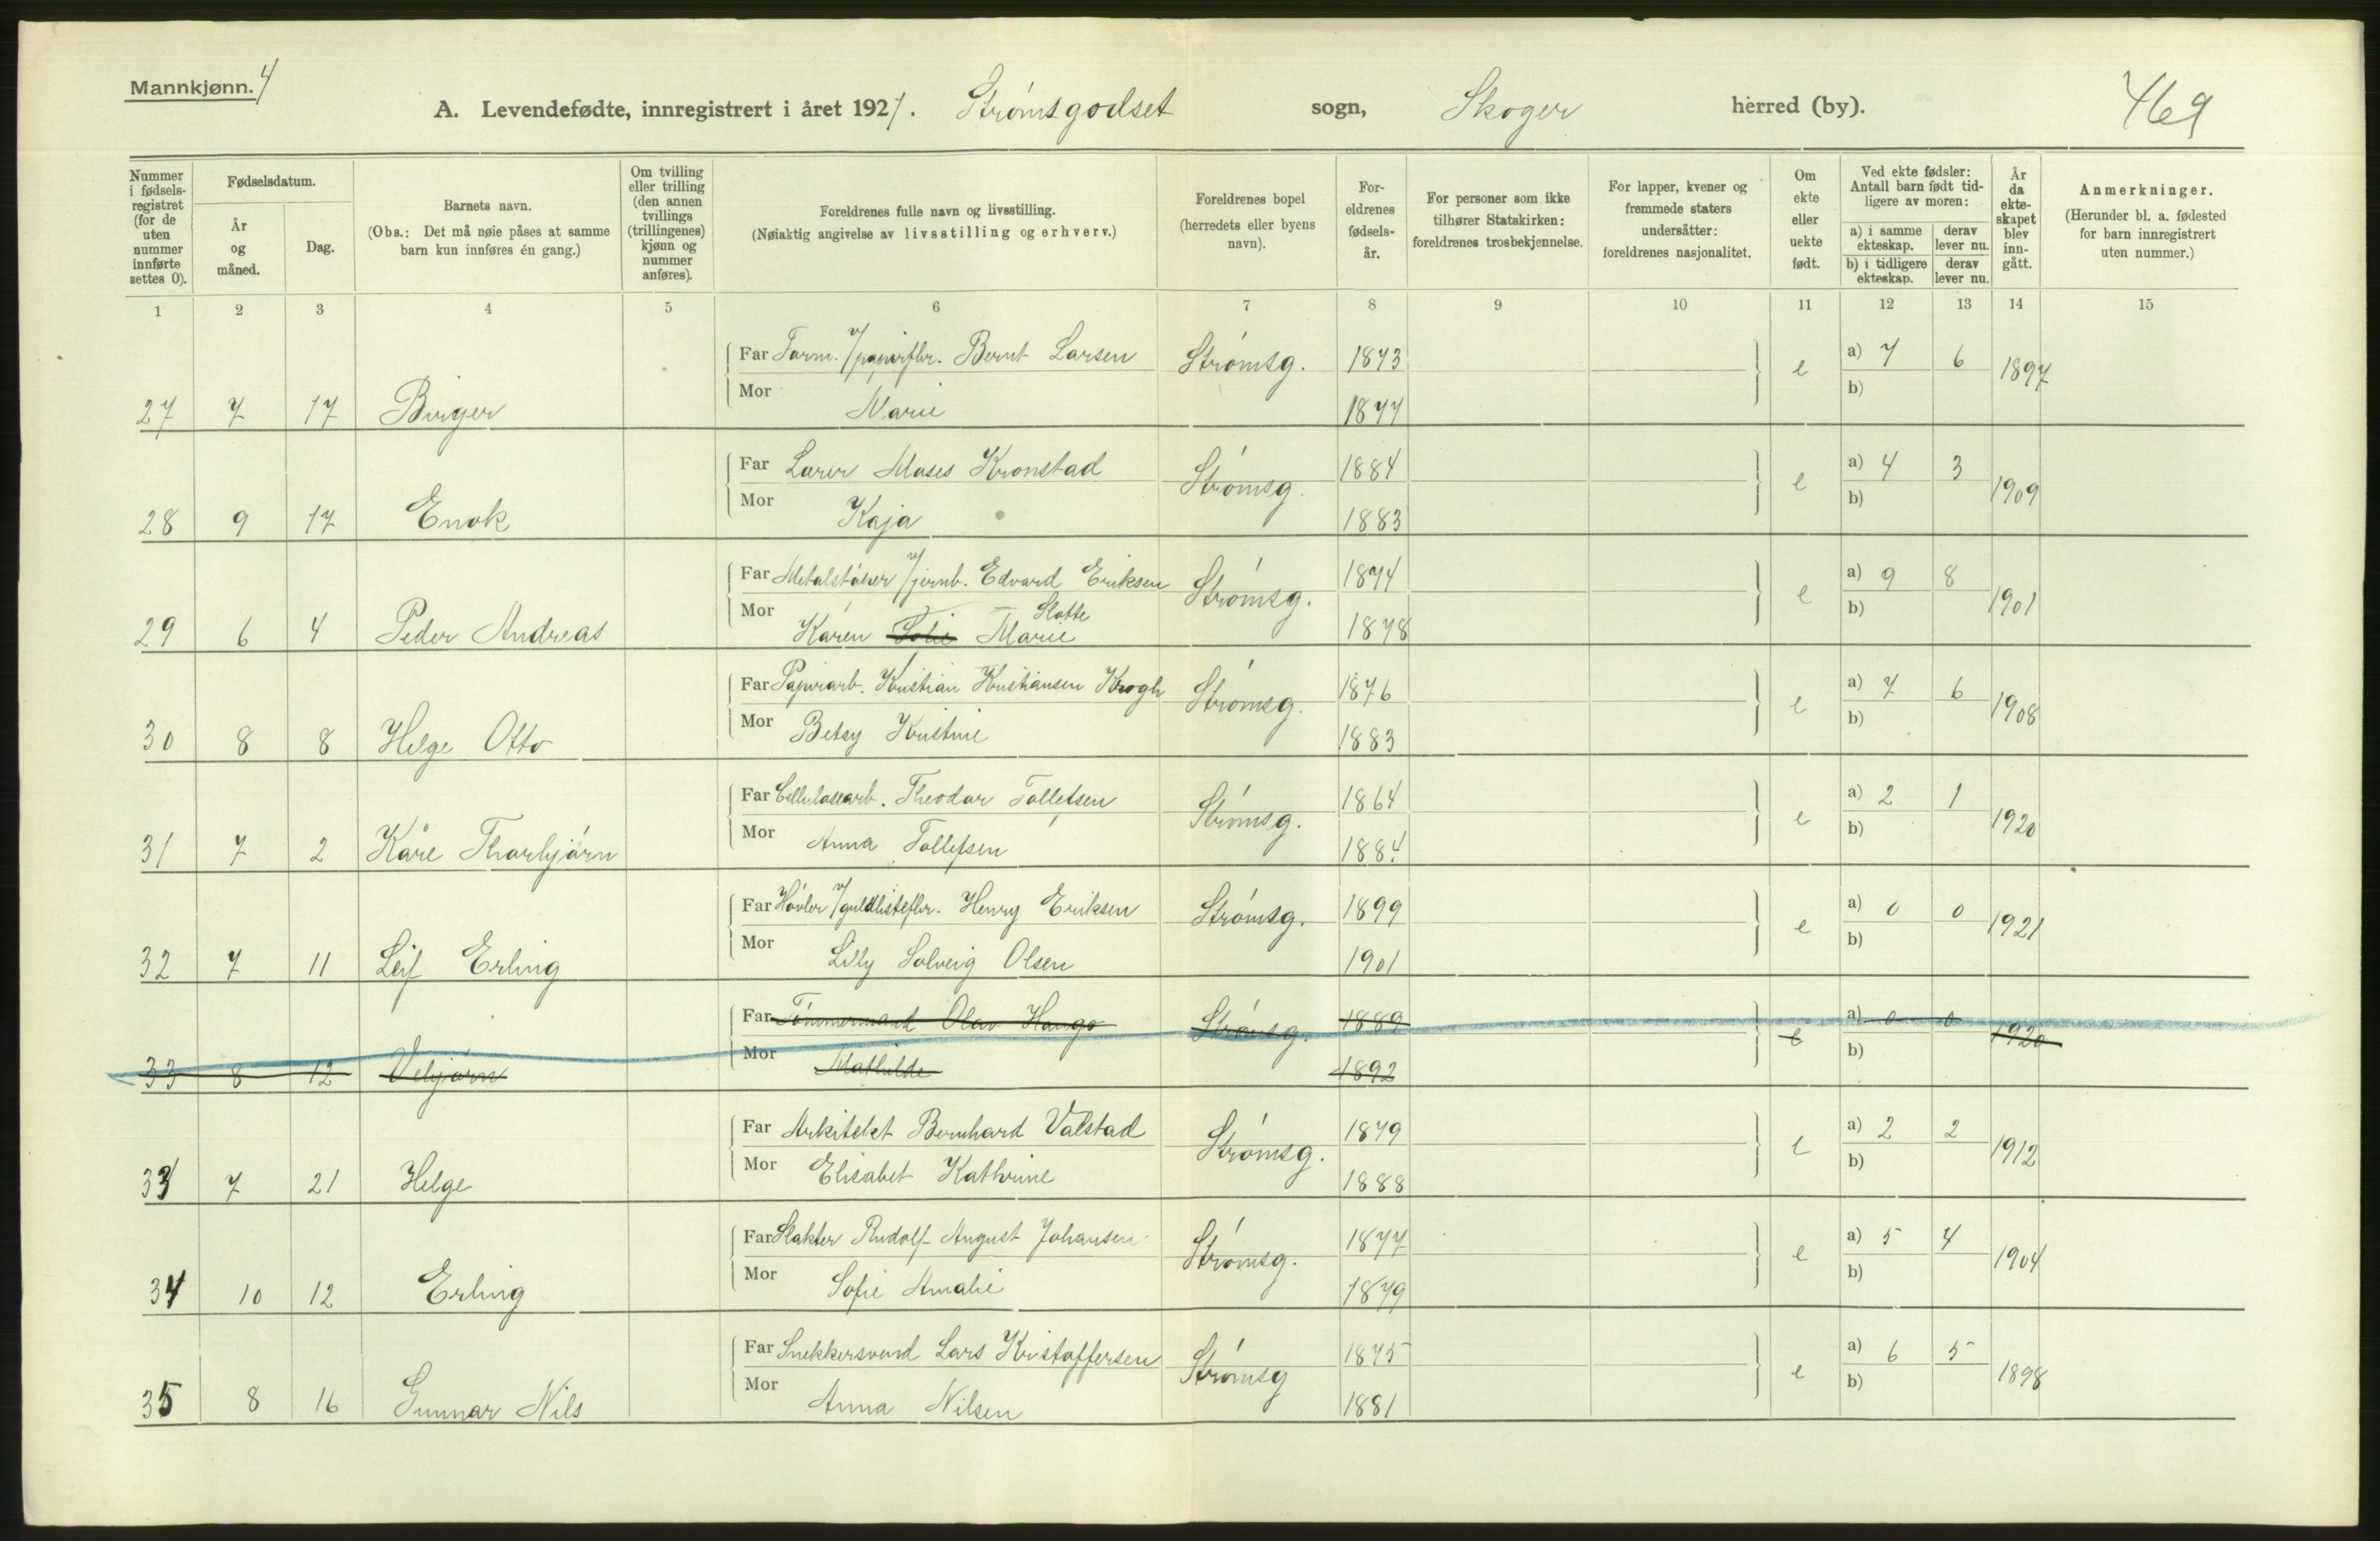 Mannkjønn. 4
A. Levendefødte, innregistrert i året 1921. Strømsgodset sogn, Skoger herred (by). 469
Nummer i fødsels-registret (for de uten nummer innførte settes 0).
Fødselsdatum.
År og måned.
Dag.
Barnets navn.
(Obs.: Det må nøie påses at samme barn kun innføres én gang.)
Om tvilling eller trilling (den annen tvillings (trillingenes) kjønn og nummer anføres).
Foreldrenes fulle navn og livsstilling.
(Nøiaktig angivelse av livsstilling og erhverv.)
Foreldrenes bopel (herredets eller byens navn).
For-eldrenes fødsels-år.
For personer som ikke tilhører Statskirken: foreldrenes trosbekjennelse.
For lapper, kvener og fremmede staters undersåtter: foreldrenes nasjonalitet.
Om ekte eller uekte født.
Ved ekte fødsler: Antall barn født tid-ligere av moren:
a) i samme ekteskap. derav lever nu.
b) i tidligere ekteskap. derav lever nu.
År da ekte-skapet blev inn-gått.
Anmerkninger.
(Herunder bl. a. fødested for barn innregistrert uten nummer.)
1 2 3 4 5 6 7 8 9 10 11 12 13 14 15
Far Form. v/papirfbr. Bernt Larsen Strømsg. 1873 e a) 7 6 1897
27 7 17 Birger Mor Marie 1877 b)
Far Lærer Moses Kronstad Strømsg. 1884 e a) 4 3 1909
28 9 17 Enok Mor Kaja 1883 b)
Far Metalstøper v/jernb. Edvard Eriksen Strømsg. 1874 e a) 9 8 1901
Slotte
29 6 4 Peder Andreas Mor Karen Marie 1878 b)
Far Papirarb. Kristian Kristiansen Krogh Strømsg. 1876 e a) 7 6 1908
30 8 8 Helge Otto Mor Betsy Kristine 1883 b)
Far Cellulosearb. Theodor Tollefsen Strømsg. 1864 e a) 2 1 1920
31 7 2 Kåre Thorbjørn Mor Anna Tollefsen 1884 b)
Far Høvler v/guldlistefbr. Henry Eriksen Strømsg. 1899 e a) 0 0 1921
32 7 11 Leif Erling Mor Lilly Solveig Olsen 1901 b)
Far Tømmermand Olav Haugo Strømsg. 1889 e a) 0 0 1920
33 8 12 Vebjørn Mor Mathilde 1892 b)
Far Arkitekt Bernhard Valstad Strømsg. 1879 e a) 2 2 1912
33 7 21 Helge Mor Elisabet Kathrine 1888 b)
Far Slakter Rudolf August Johansen Strømsg. 1877 e a) 5 4 1904
34 10 12 Erling Mor Sofie Amalie 1879 b)
Far Snekkersvend Lars Kristoffersen Strømsg 1875 e a) 6 5 1898
35 8 16 Gunnar Nils Mor Anna Nilsen 1881 b)